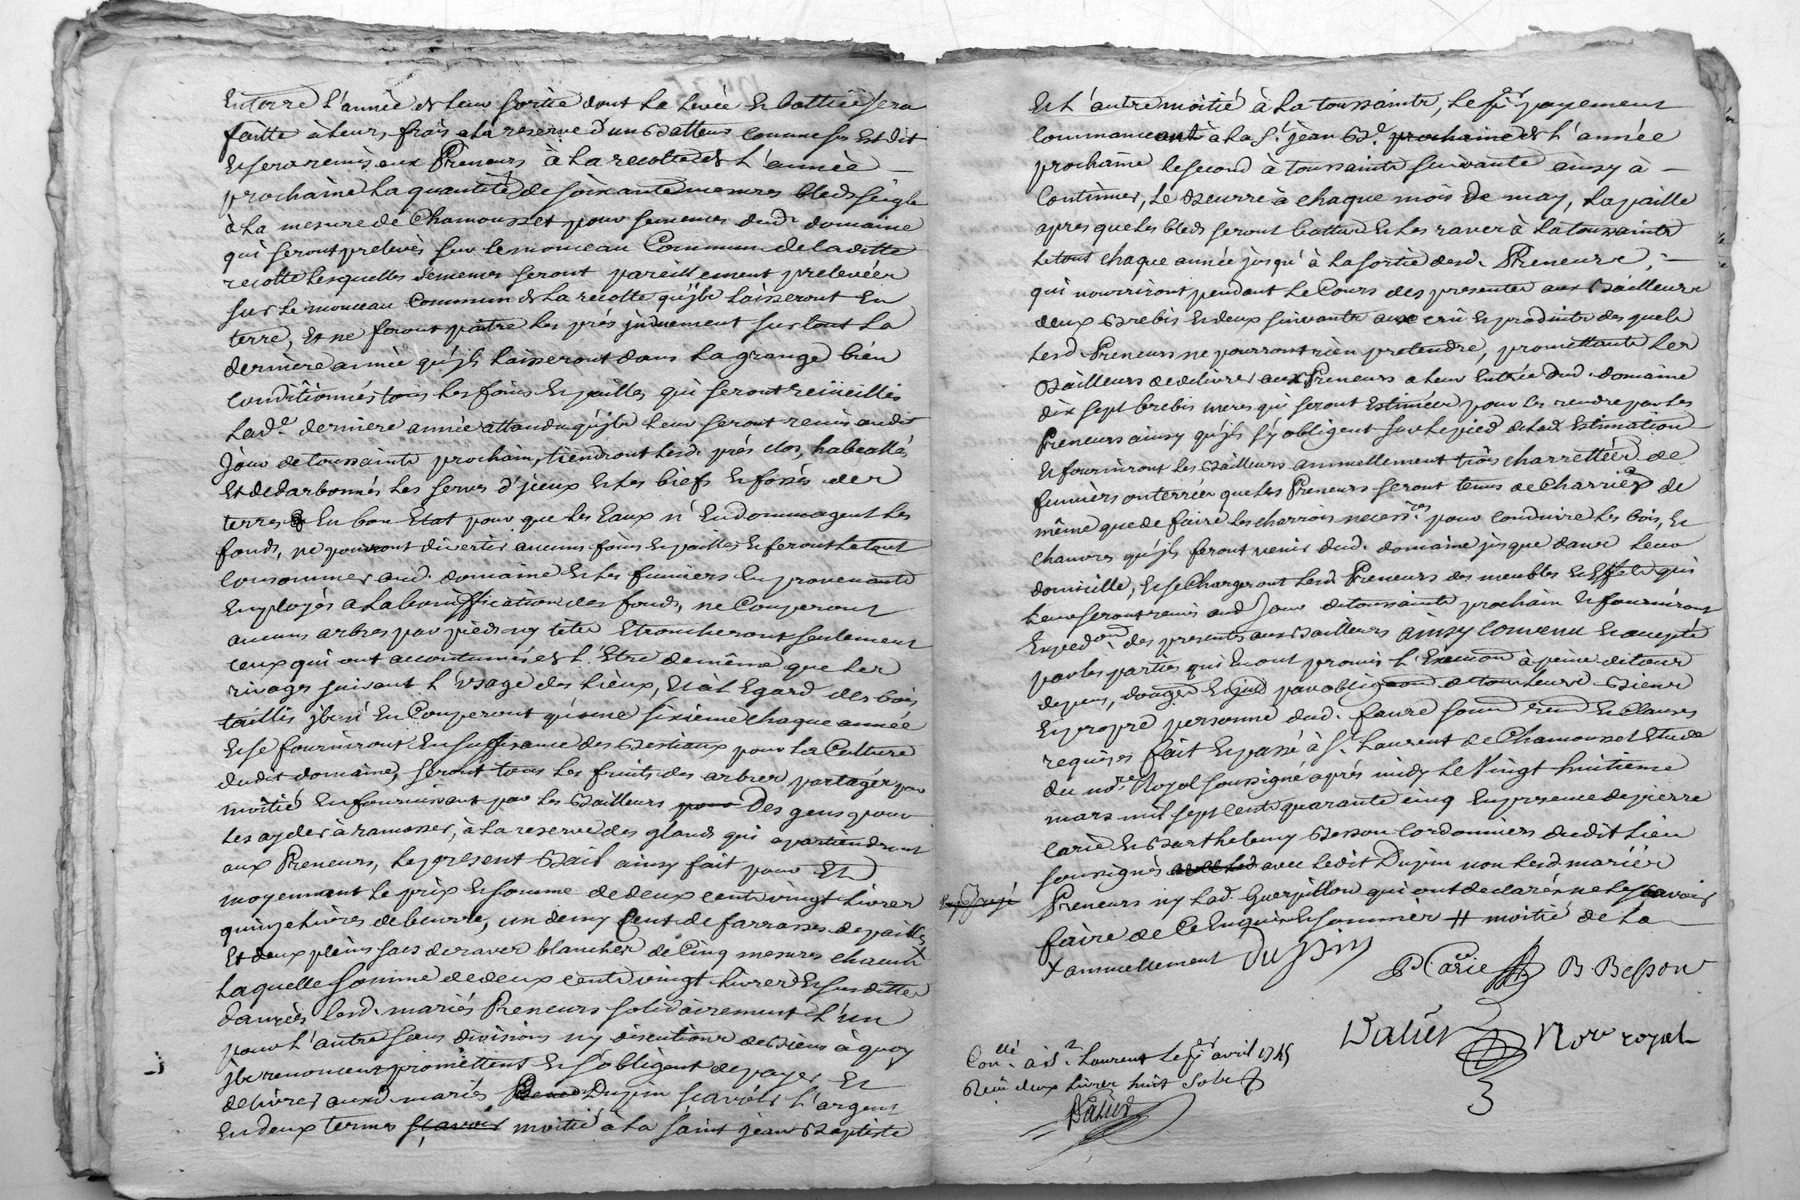 En terre l'année de leur sortie dont la levée et battiue sera
faitte à leurs frais a la reserve d'un Batteur comme sus Est dit
Et sera remis aux Preneurs à la recolte de l'année
prochaine la quantité de soixante mesures bled seigle
à la mesure de Chamousset pour semences dud. domaine
qui seront prelevés sur le monceau Commun de la ditte
recolte lesquelles semences seront pareillement prelevées
sur le monceau Commun de la recolte qu'jls laisseront En
terre, Et ne feront paitre les prés surtout la
derniere année qu'jls laisseront dans la grange bien
conditionnés tous les foins Et pailles qui seront recüeillis
lad.e derniere année attendu qu'jls leur seront remis audit
Jour de toussaints prochain, tiendront lesd. prés clos,
Et les serves d'jceux Et les biefs Et fossés des
terres En bon Etat pour que les Eaux n'Endommagent les
fonds, ne pourront divertir aucuns foins Et pailles Et feront le tout
consommer aud. domaine Et les fumiers En provenants
Employés a la boniffication des fonds, ne Couperont
aucuns arbres par pied ny tête Etroncheront seulement
ceux qui ont accoutumés de l'Etre de même que les
rivages suivant l'usage des lieux, Et à l'Egard des bois
taillis jls n'En Couperont qu'une sixieme chaque année
Et se fourniront En suffisance des Bestiaux pour la Culture
dudit domaine, seront tous les fruits des arbres partagés par
moitié En fournissant par les Bailleurs pour Des gens pour
les ayder à ramasser, à la reserve des glands qui apartiendront
aux Preneurs, le present Bail ainsy fait pour Et
moyennant le prix Et somme de deux cents vingt livres
quinze livres de beurre, un demy Cent de farrasses de paille
Et deux pleins sacs de raves blanches de Cinq mesures chacun X
laquelle somme de deux cents vingt livres Et susdittes
danrées lesd. mariés Preneurs solidairement l'un
pour l'autre sans division ny discution de Biens à quoy
jls renoncent promettent Et s'obligent de payer Et
delivrer auxd. mariés Dupin sçavoir l'argent
En deux termes sçavoir moitié à la saint jean Baptiste
Et l'autre moitié à la toussaints, le p.er payement
commenceant à la S.t jean B.te prochaine de l'année
prochaine le second à toussaints suivante ainsy à
Continuer, Le Beurre à chaque mois de may, la paille
apres que les bleds seront battus Et les raves à la toussaints
le tout chaque année jusqu'à la sortie desd. Preneurs,
qui nourriront pendant le Cours des presentes aux Bailleurs
deux Brebis Et deux suivants aux crû Et produits desquels
lesd. Preneurs ne pourront rien pretendre, promettants les
Bailleurs de delivrer aux Preneurs a leur Entrée dud. domaine
dix sept brebis meres qui seront Estimées pour les rendre par les
Preneurs ainsy qu'jls s'y obligent sur le pied de lad. Estimation
Et fourniront les Bailleurs annuellement trois charrettées de
fumiers ou terrées que les Preneurs seront tenus de Charrier de
même que de faire les charrois necess.res pour conduire les bois, Et
chanvres qu'jls feront venir dud. domaine jusque dans leur
domicille, Et se Chargeront lesd. Preneurs des meubles Et Effets qui
leur seront remis aud. Jour de toussaints prochain Et fourniront
Exped.on des presentes aux Bailleurs ainsy convenu Et accepté
par les parties qui En ont promis l'Execution à peine de tous
depens, domges Et par obligaon de tous leurs Biens
Et propre personne dud. faure soumon renon Et Clauses
requises fait Et passé à S.t Laurent de Chamousset Etude
du no.re Royal soussigné après midy le Vingt huitieme
mars mil sept cents quarante cinq En presence de pierre
Carie Et Barthelemy Besson Cordonniers dudit lieu
soussignés avec ledit Dupin non lesd. mariés
Preneurs ny lad. Guerpillon qui ont declarés ne le sçavoir
faire de Ce Enquis Et sommés # moitié de la
X annuellement Dupin
P Carie B Besson
Dalier No.re royal
Con.llé à S.t Laurent le p.er avril 1745
Reçu deux livres huit sols
Dalier